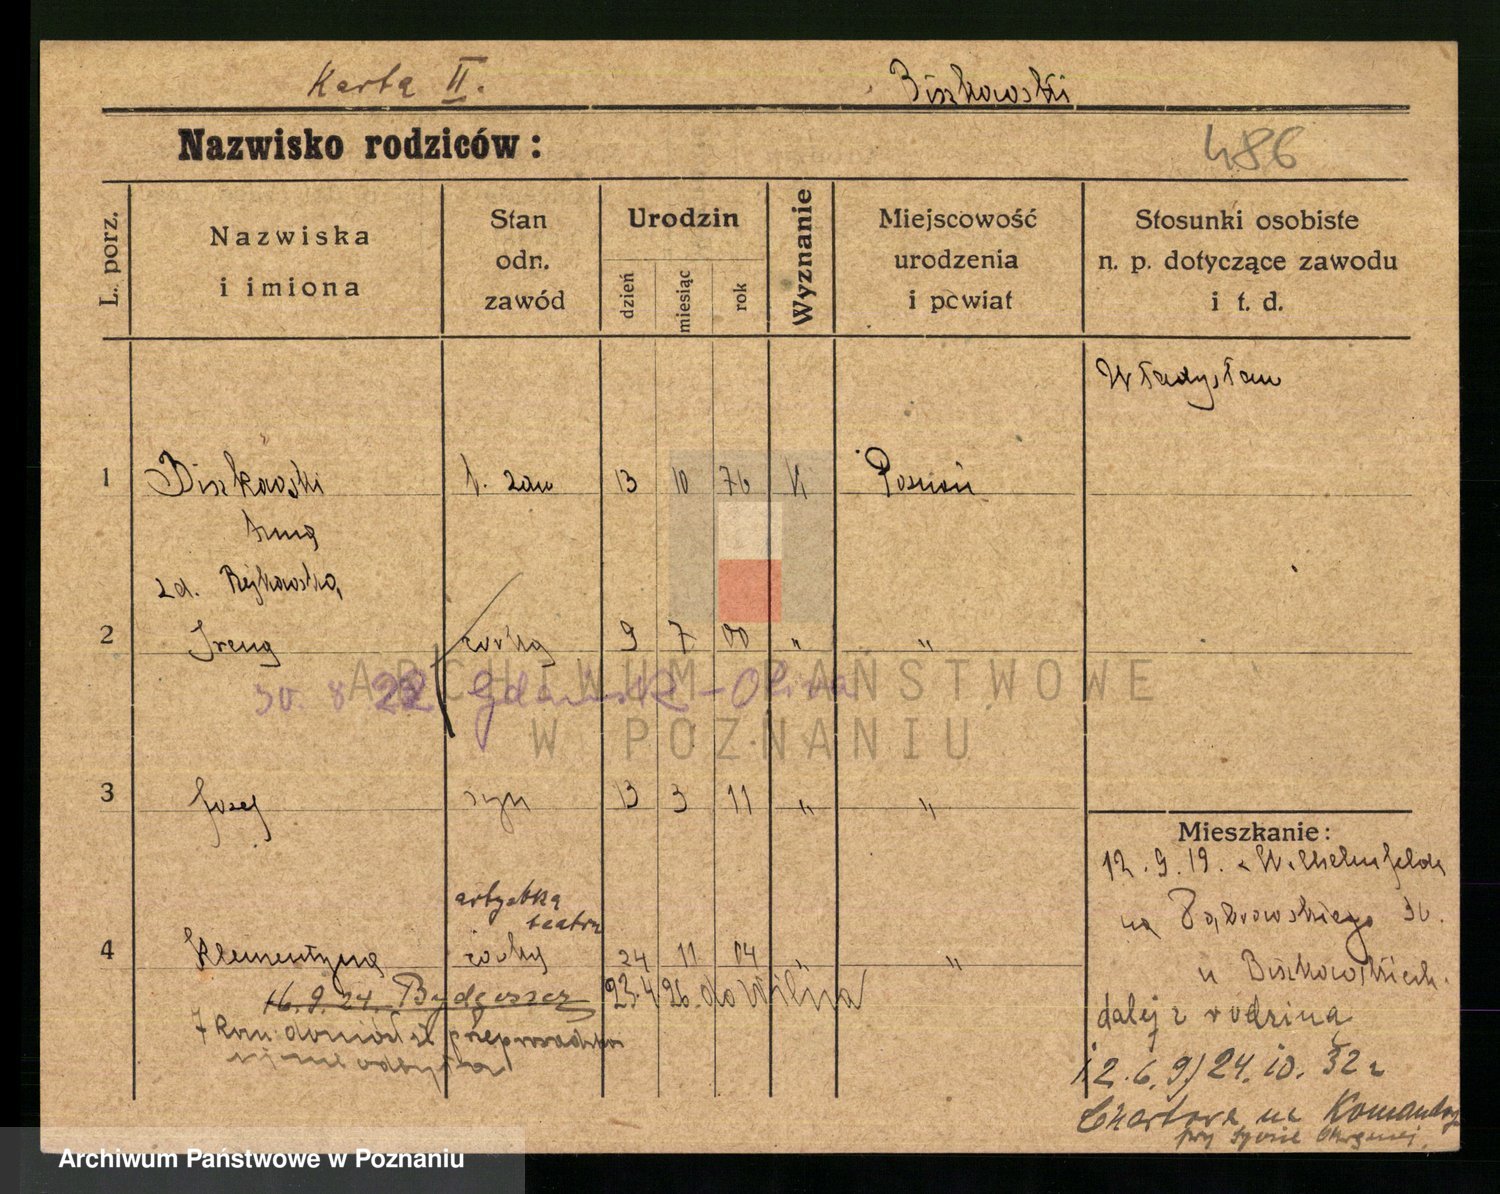 Karta II.
Biszkowski
Nazwisko rodziców:
486
L. porz.
Nazwiska
i imiona
Stan
odn.
zawód
Urodzin
dzień
miesiąc
rok
Wyznanie
Miejscowość
urodzenia
i powiat
Stosunki osobiste
n. p. dotyczące zawodu
i t. d.
Władysław
1 Biszkowski b. zaw 13 10 76 K Poznań
Anna
zd. Rejkowska
2 Irena córka 9 7 00 " "
30. 8 22 Gdańsk-Oliwa
ARCHIWUM PAŃSTWOWE
W POZNANIU
3 Józef syn 13 3 11 " "
Mieszkanie:
12. 9. 19. z Wilhelmsfelde
na Dąbrowskiego 30.
u Biszkowskich.
dalej z rodziną
artystka
teatru
4 Klementyna córka 24 11 04 " "
16. 9. 24. Bydgoszcz 23. 4 26. do Wilna
7 kom. doniósł
2. 6. 9) 24. 10. 32 r
na
przy
Archiwum Państwowe w Poznaniu